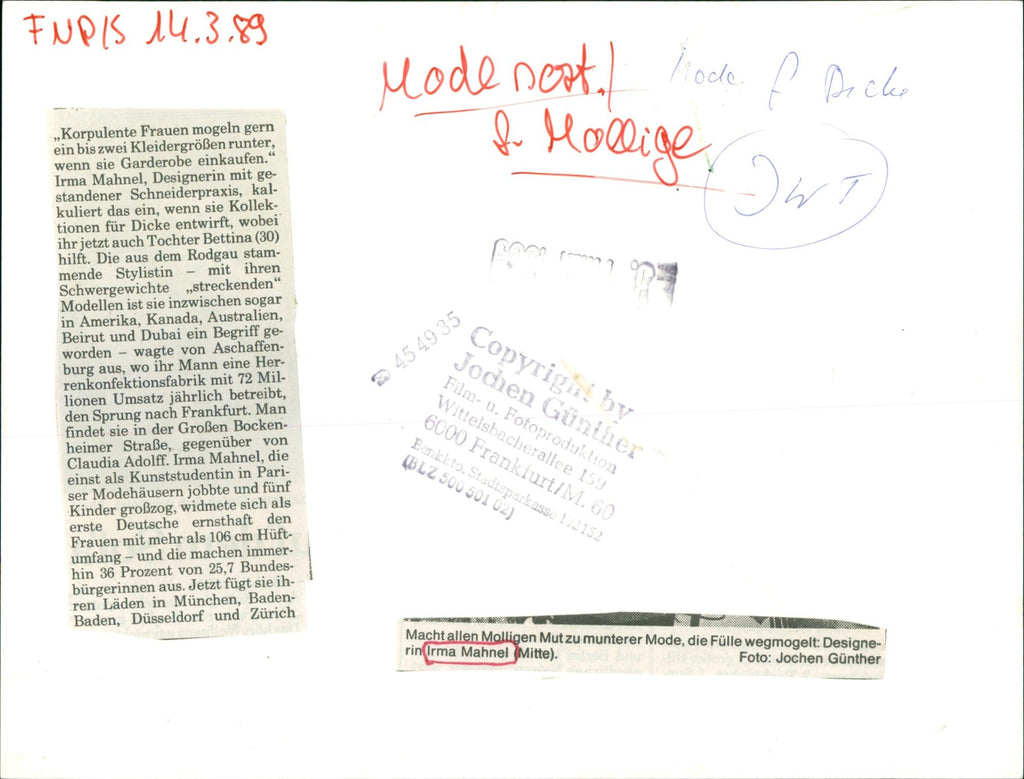 FNP/S 14.3.89
Mode
f. Mollige
Mode f Dicke
„Korpulente Frauen mogeln gern
ein bis zwei Kleidergrößen runter,
wenn sie Garderobe einkaufen.“
Irma Mahnel, Designerin mit ge-
standener Schneiderpraxis, kal-
kuliert das ein, wenn sie Kollek-
tionen für Dicke entwirft, wobei
ihr jetzt auch Tochter Bettina (30)
hilft. Die aus dem Rodgau stam-
mende Stylistin – mit ihren
Schwergewichte „streckenden“
Modellen ist sie inzwischen sogar
in Amerika, Kanada, Australien,
Beirut und Dubai ein Begriff ge-
worden – wagte von Aschaffen-
burg aus, wo ihr Mann eine Her-
renkonfektionsfabrik mit 72 Mil-
lionen Umsatz jährlich betreibt,
den Sprung nach Frankfurt. Man
findet sie in der Großen Bocken-
heimer Straße, gegenüber von
Claudia Adolff. Irma Mahnel, die
einst als Kunststudentin in Pari-
ser Modehäusern jobbte und fünf
Kinder großzog, widmete sich als
erste Deutsche ernsthaft den
Frauen mit mehr als 106 cm Hüft-
umfang – und die machen immer-
hin 36 Prozent von 25,7 Bundes-
bürgerinnen aus. Jetzt fügt sie ih-
ren Läden in München, Baden-
Baden, Düsseldorf und Zürich
☎ 45 49 35
Copyright by
Jochen Günther
Film- u. Fotoproduktion
Wittelsbacherallee 159
6000 Frankfurt/M. 60
Bankkto. Stadtsparkasse 192152
(BLZ 500 501 02)
Macht allen Molligen Mut zu munterer Mode, die Fülle wegmogelt: Designe-
rin Irma Mahnel (Mitte).
Foto: Jochen Günther